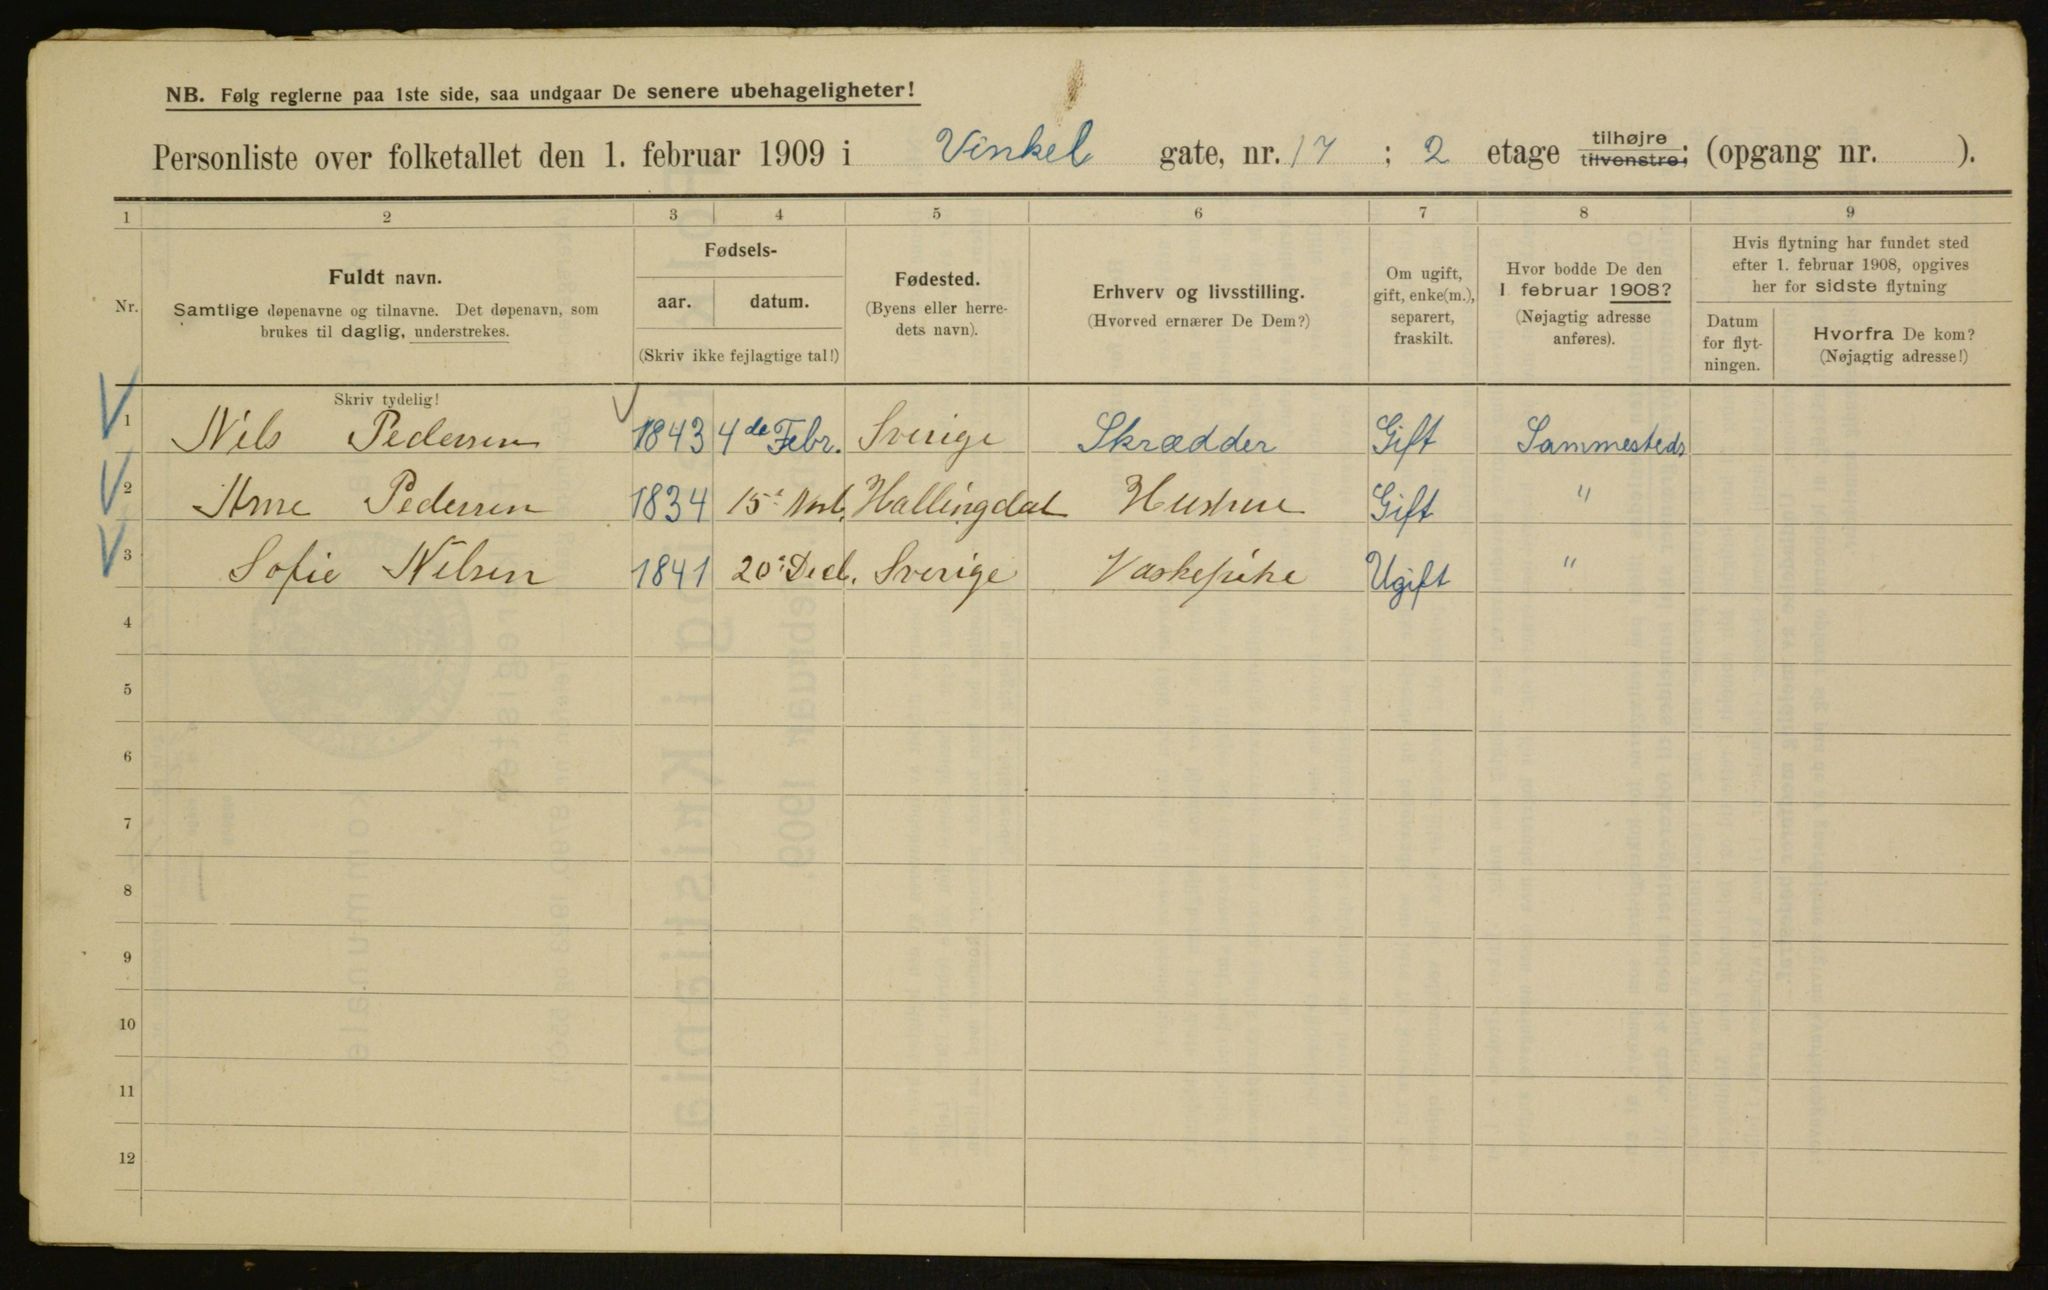 NB. Følg reglerne paa 1ste side, saa undgaar De senere ubehageligheter!
Personliste over folketallet den 1. februar 1909 i Vinkel gate, nr. 17 ; 2 etage tilhøjre tilvenstre; (opgang nr. ).
1 2 3 4 5 6 7 8 9
Nr.
Fuldt navn.
Samtlige døpenavne og tilnavne. Det døpenavn, som
brukes til daglig, understrekes.
Fødsels-
aar. datum.
(Skriv ikke fejlagtige tal!)
Fødested.
(Byens eller herre-
dets navn).
Erhverv og livsstilling.
(Hvorved ernærer De Dem?)
Om ugift,
gift, enke(m.),
separert,
fraskilt.
Hvor bodde De den
1 februar 1908?
(Nøjagtig adresse
anføres).
Hvis flytning har fundet sted
efter 1. februar 1908, opgives
her for sidste flytning
Datum
for flyt-
ningen.
Hvorfra De kom?
(Nøjagtig adresse!)
Skriv tydelig!
1 Nils Pedersen 1843 4de Febr. Sverige Skrædder Gift Sammesteds
2 Pedersen 1834 15 Hallingdal Hustru Gift "
3 Sofie Nilsen 1841 20 Sverige Vaskepike Ugift "
4
5
6
7
8
9
10
11
12